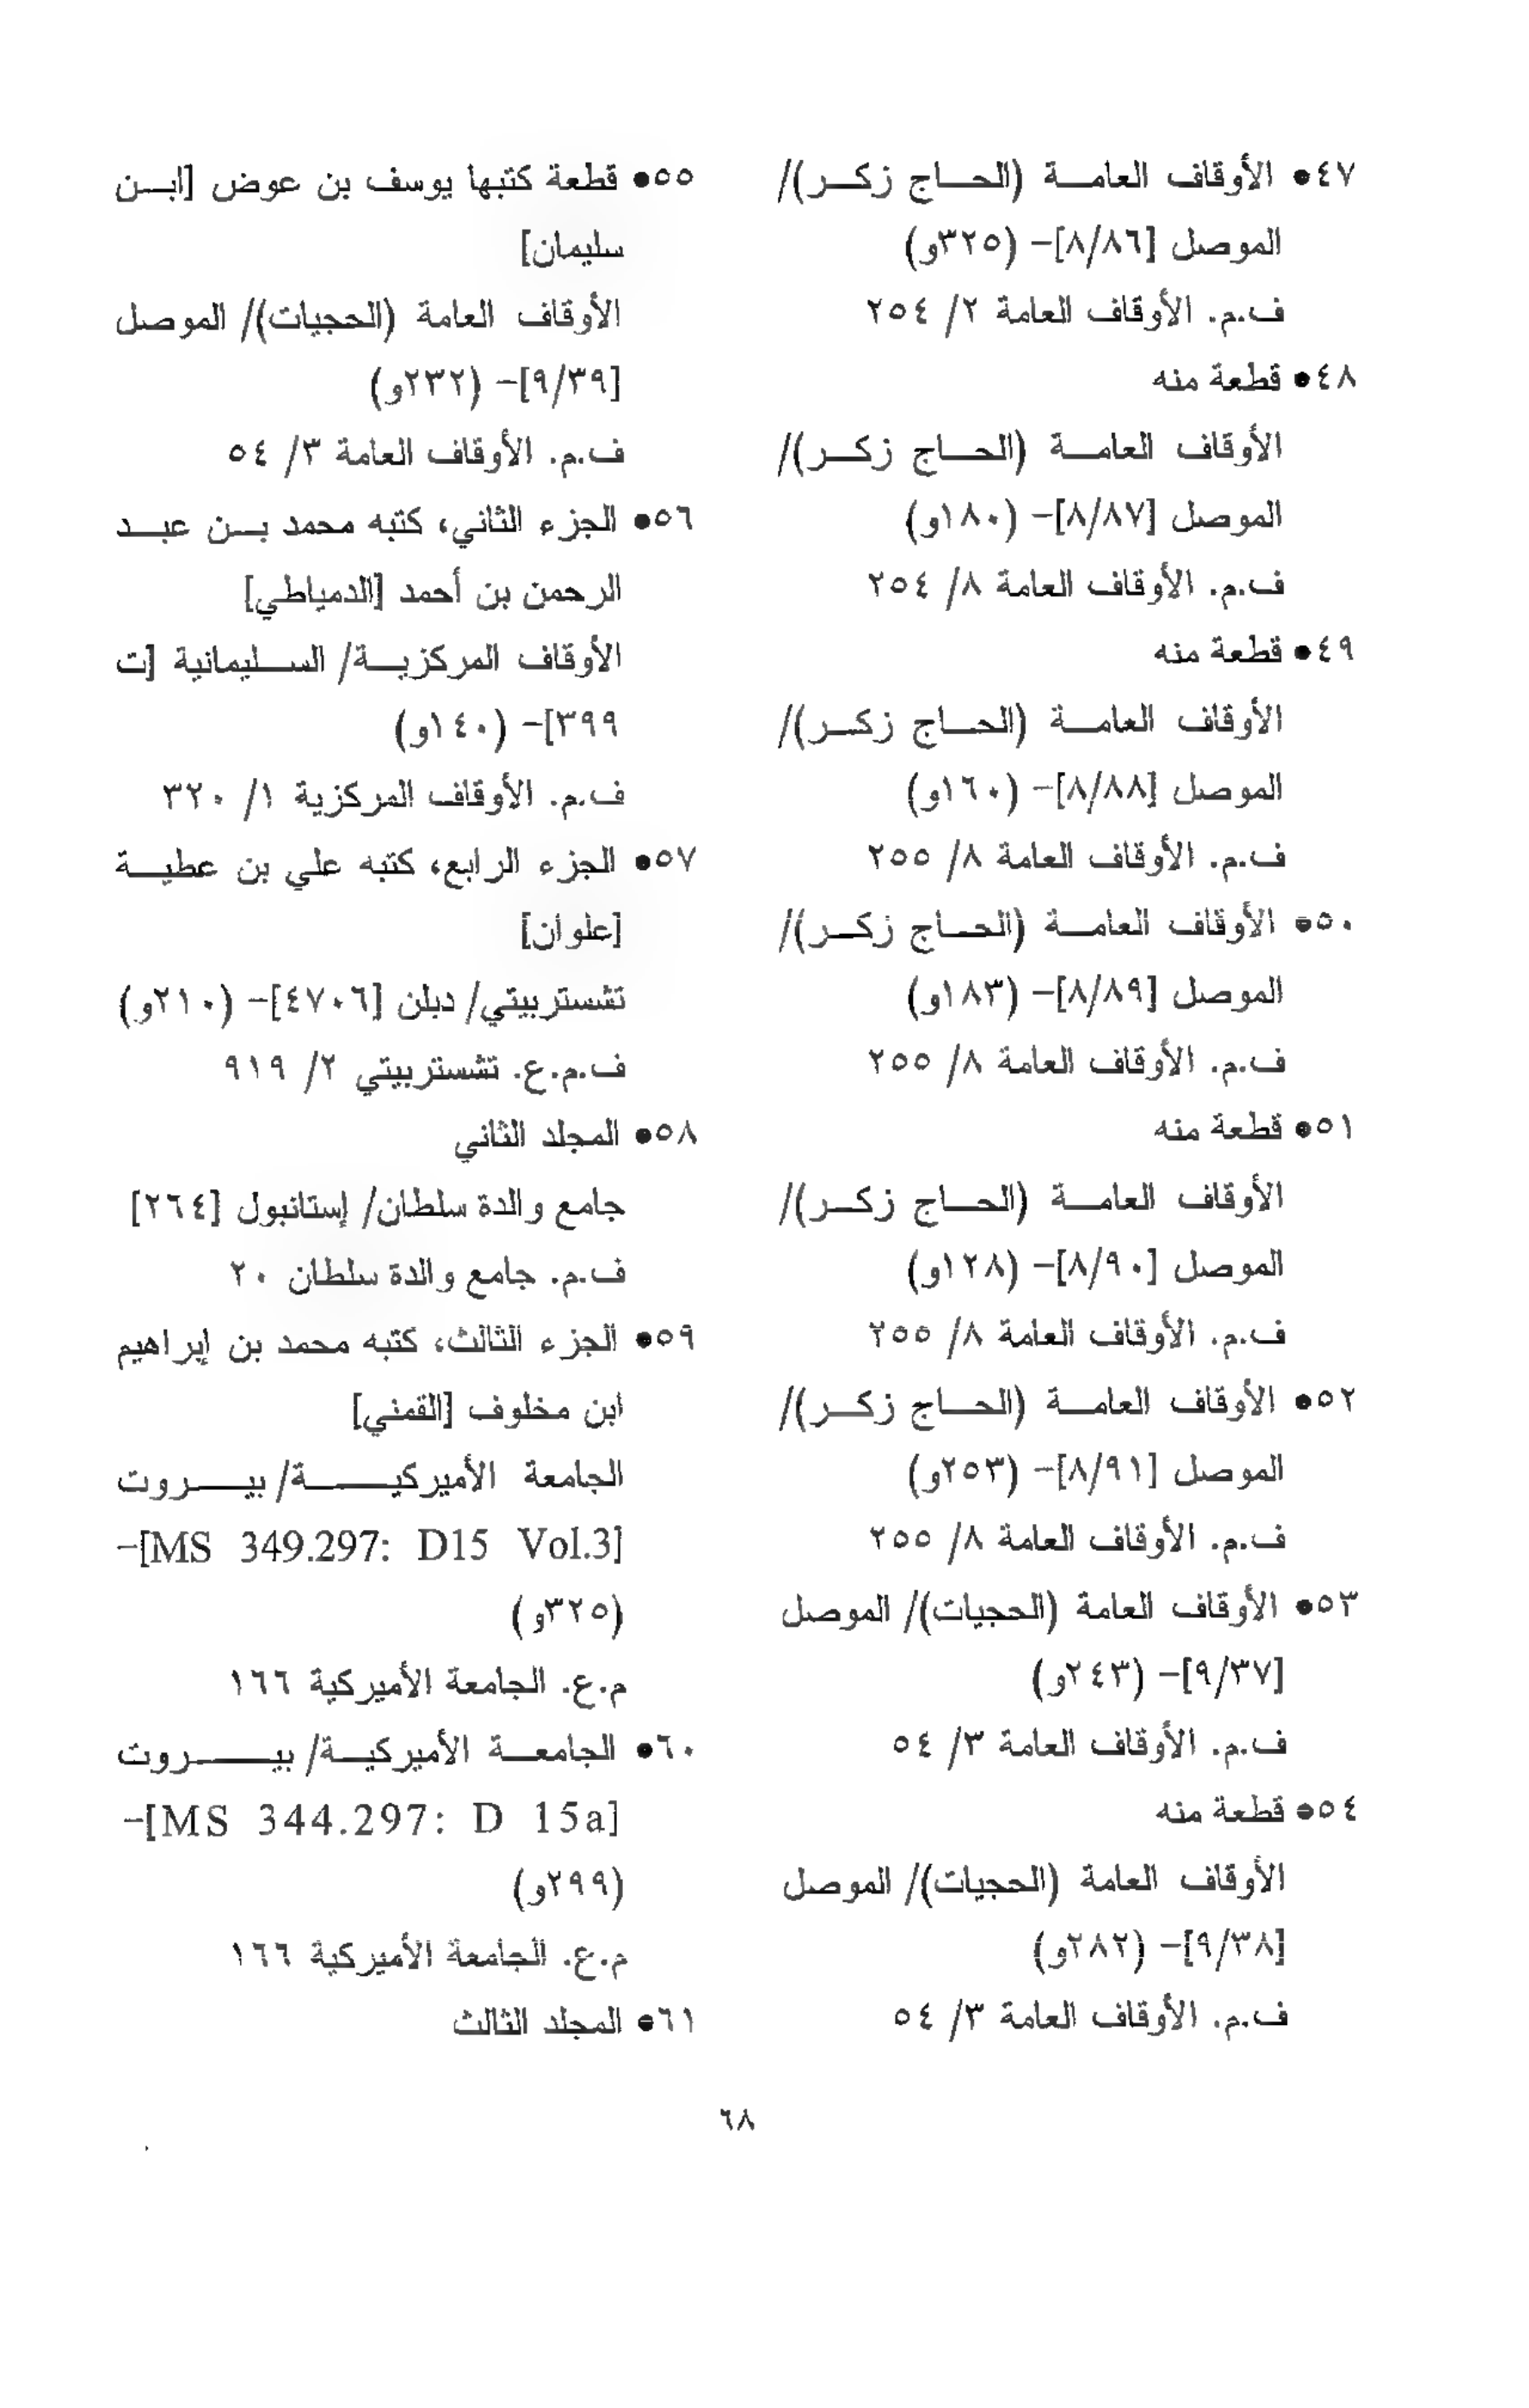 ٤٧• الأوقاف العامة (الحاج زكر)/
الموصل [٨/٨٦]- (٣٢٥و)
ف.م. الأوقاف العامة ٢/ ٢٥٤
٤٨• قطعة منه
الأوقاف العامة (الحاج زكر)/
الموصل [٨/٨٧]- (١٨٠و)
ف.م. الأوقاف العامة ٨/ ٢٥٤
٤٩• قطعة منه
الأوقاف العامة (الحاج زكر)/
الموصل [٨/٨٨]- (١٦٠و)
ف.م. الأوقاف العامة ٨/ ٢٥٥
٥٠• الأوقاف العامة (الحاج زكر)/
الموصل [٨/٨٩]- (١٨٣و)
ف.م. الأوقاف العامة ٨/ ٢٥٥
٥١• قطعة منه
الأوقاف العامة (الحاج زكر)/
الموصل [٨/٩٠]- (١٢٨و)
ف.م. الأوقاف العامة ٨/ ٢٥٥
٥٢• الأوقاف العامة (الحاج زكر)/
الموصل [٨/٩١]- (٢٥٣و)
ف.م. الأوقاف العامة ٨/ ٢٥٥
٥٣• الأوقاف العامة (الحجيات)/ الموصل
[٩/٣٧]- (٢٤٣و)
ف.م. الأوقاف العامة ٣/ ٥٤
٥٤• قطعة منه
الأوقاف العامة (الحجيات)/ الموصل
[٩/٣٨]- (٢٨٢و)
ف.م. الأوقاف العامة ٣/ ٥٤
٥٥• قطعة كتبها يوسف بن عوض [ابن
سليمان]
الأوقاف العامة (الحجيات)/ الموصل
[٩/٣٩]- (٢٣٢و)
ف.م. الأوقاف العامة ٣/ ٥٤
٥٦• الجزء الثاني، كتبه محمد بن عبد
الرحمن بن أحمد [الدمياطي]
الأوقاف المركزية/ السليمانية [ت
٣٩٩]- (١٤٠و)
ف.م. الأوقاف المركزية ١/ ٣٢٠
٥٧• الجزء الرابع، كتبه علي بن عطية
[علوان]
تشستربيتي/ دبلن [٤٧٠٦]- (٢١٠و)
ف.م.ع. تشستربيتي ٢/ ٩١٩
٥٨• المجلد الثاني
جامع والدة سلطان/ إستانبول [٢٦٤]
ف.م. جامع والدة سلطان ٢٠
٥٩• الجزء الثالث، كتبه محمد بن إبراهيم
ابن مخلوف [القمني]
الجامعة الأميركية/ بيروت
[MS 349.297: D15 Vol.3]-
(٣٢٥و)
م.ع. الجامعة الأميركية ١٦٦
٦٠• الجامعة الأميركية/ بيروت
[MS 344.297: D 15a]-
(٢٩٩و)
م.ع. الجامعة الأميركية ١٦٦
٦١• المجلد الثالث
٦٨